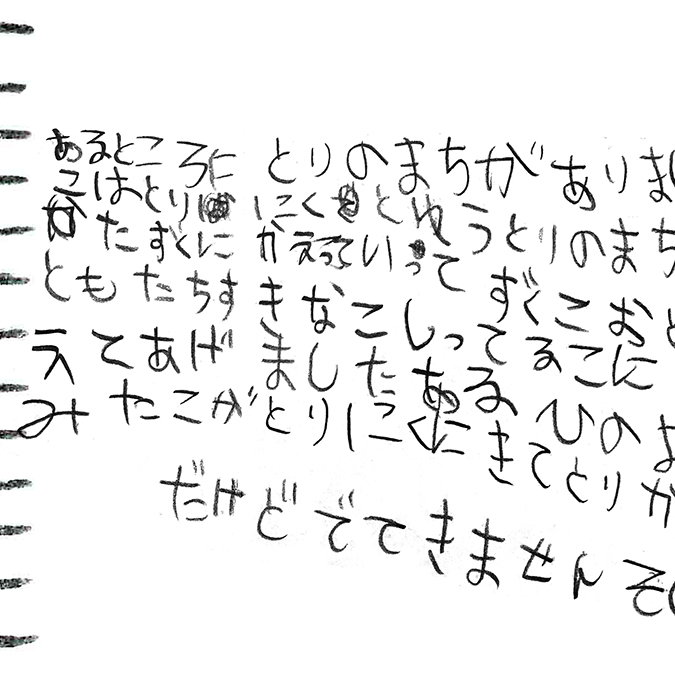 あるところに とりのまちがありま
こはとり にくとゆうとりのまち
かたすぐに かえっていって すぐこお
ともたちすきなこしってるこに
えてあげましたあるひのよ
みたこがとりにくにきてとりか
だけどでてきませんそ